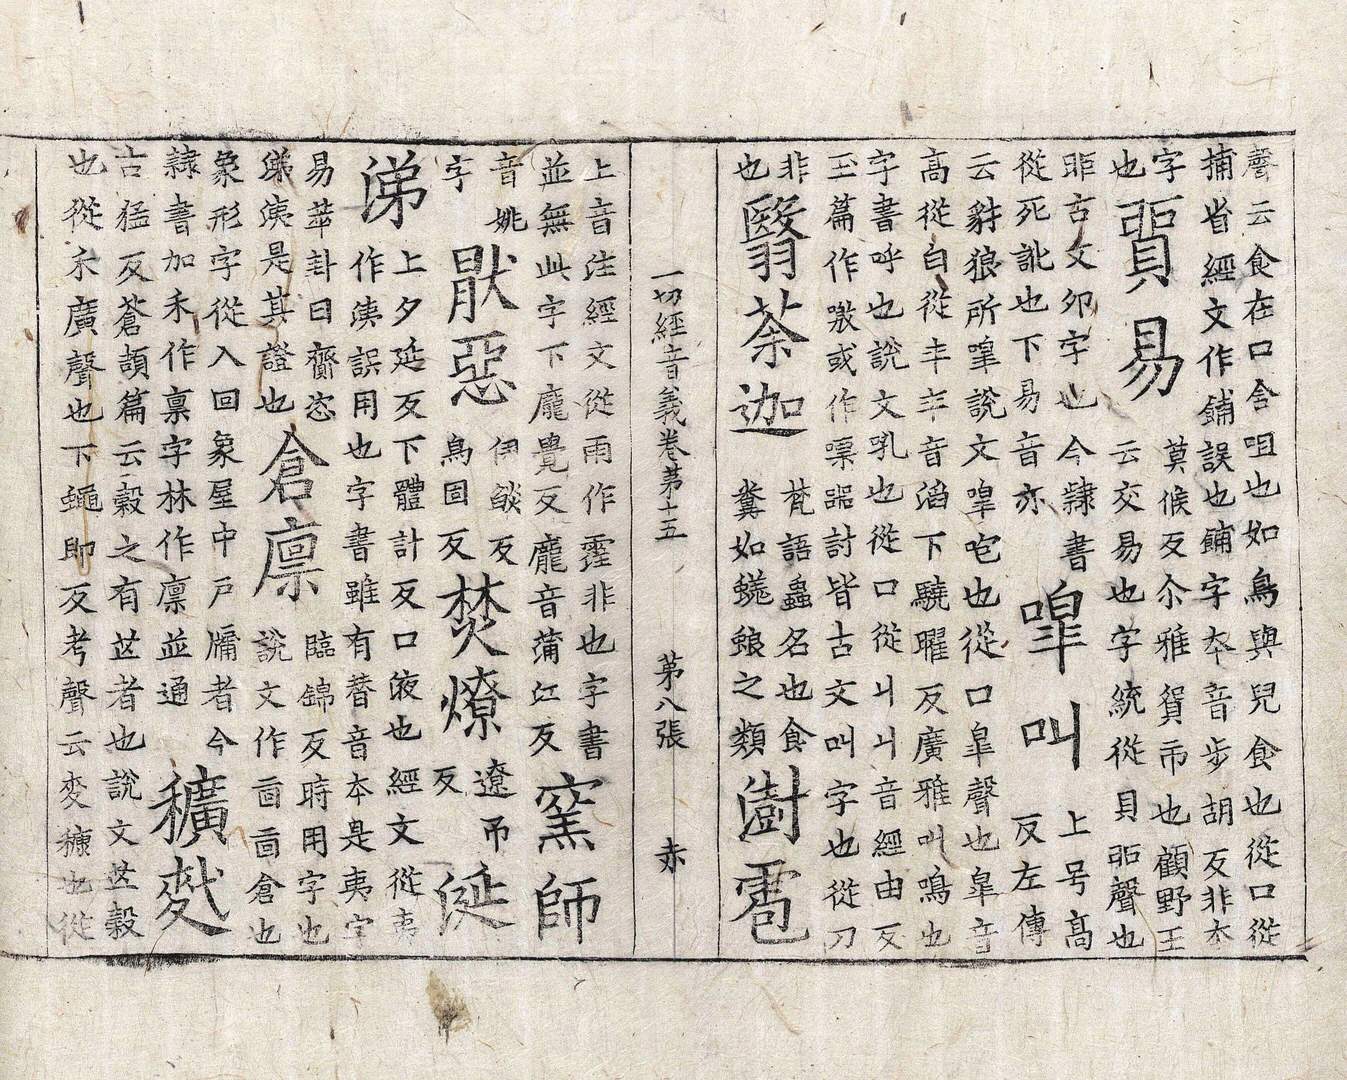 聲云食在口含咀也如鳥與兒食也從口從
捕省經文作鋪誤也餔字本音步胡反非本
字
也
貿易
莫候反尒雅貿市也顧野王
云交易也字統從貝丣聲也
丣古文卯字也今隸書
從死訛也下易音亦
嘷叫
上号高
反左傳
云豺狼所嘷說文嘷咆也從口皐聲也皐音
高從白從夲夲音滔下驍曜反廣雅叫鳴也
字書呼也說文吼也從口從丩丩音經由反
玉篇作噭或作嘂㗊討皆古文叫字也從刀
非
也
翳荼迦
梵語蟲名也食
糞如蜣蜋之類
澍雹
一切經音義卷第十五 第八張 赤
上音注經文從雨作霔非也字書
並無此字下龐覺反龐音蒲江反
窯師
音姚
字
猒惡
伊燄反
烏固反
焚燎
遼弔
反
涎
涕
上夕延反下體計反口液也經文從夷
作洟誤用也字書雖有替音本是夷字
易萃卦曰齎咨
涕洟是其證也
倉廩
臨錦反時用字也
說文作㐭㐭倉也
象形字從入回象屋中戶牖者今
隸書加禾作稟字林作廩並通
穬䴬
古猛反蒼頡篇云穀之有芒者也說文芒穀
也從禾廣聲也下蠅即反考聲云麥糠也從